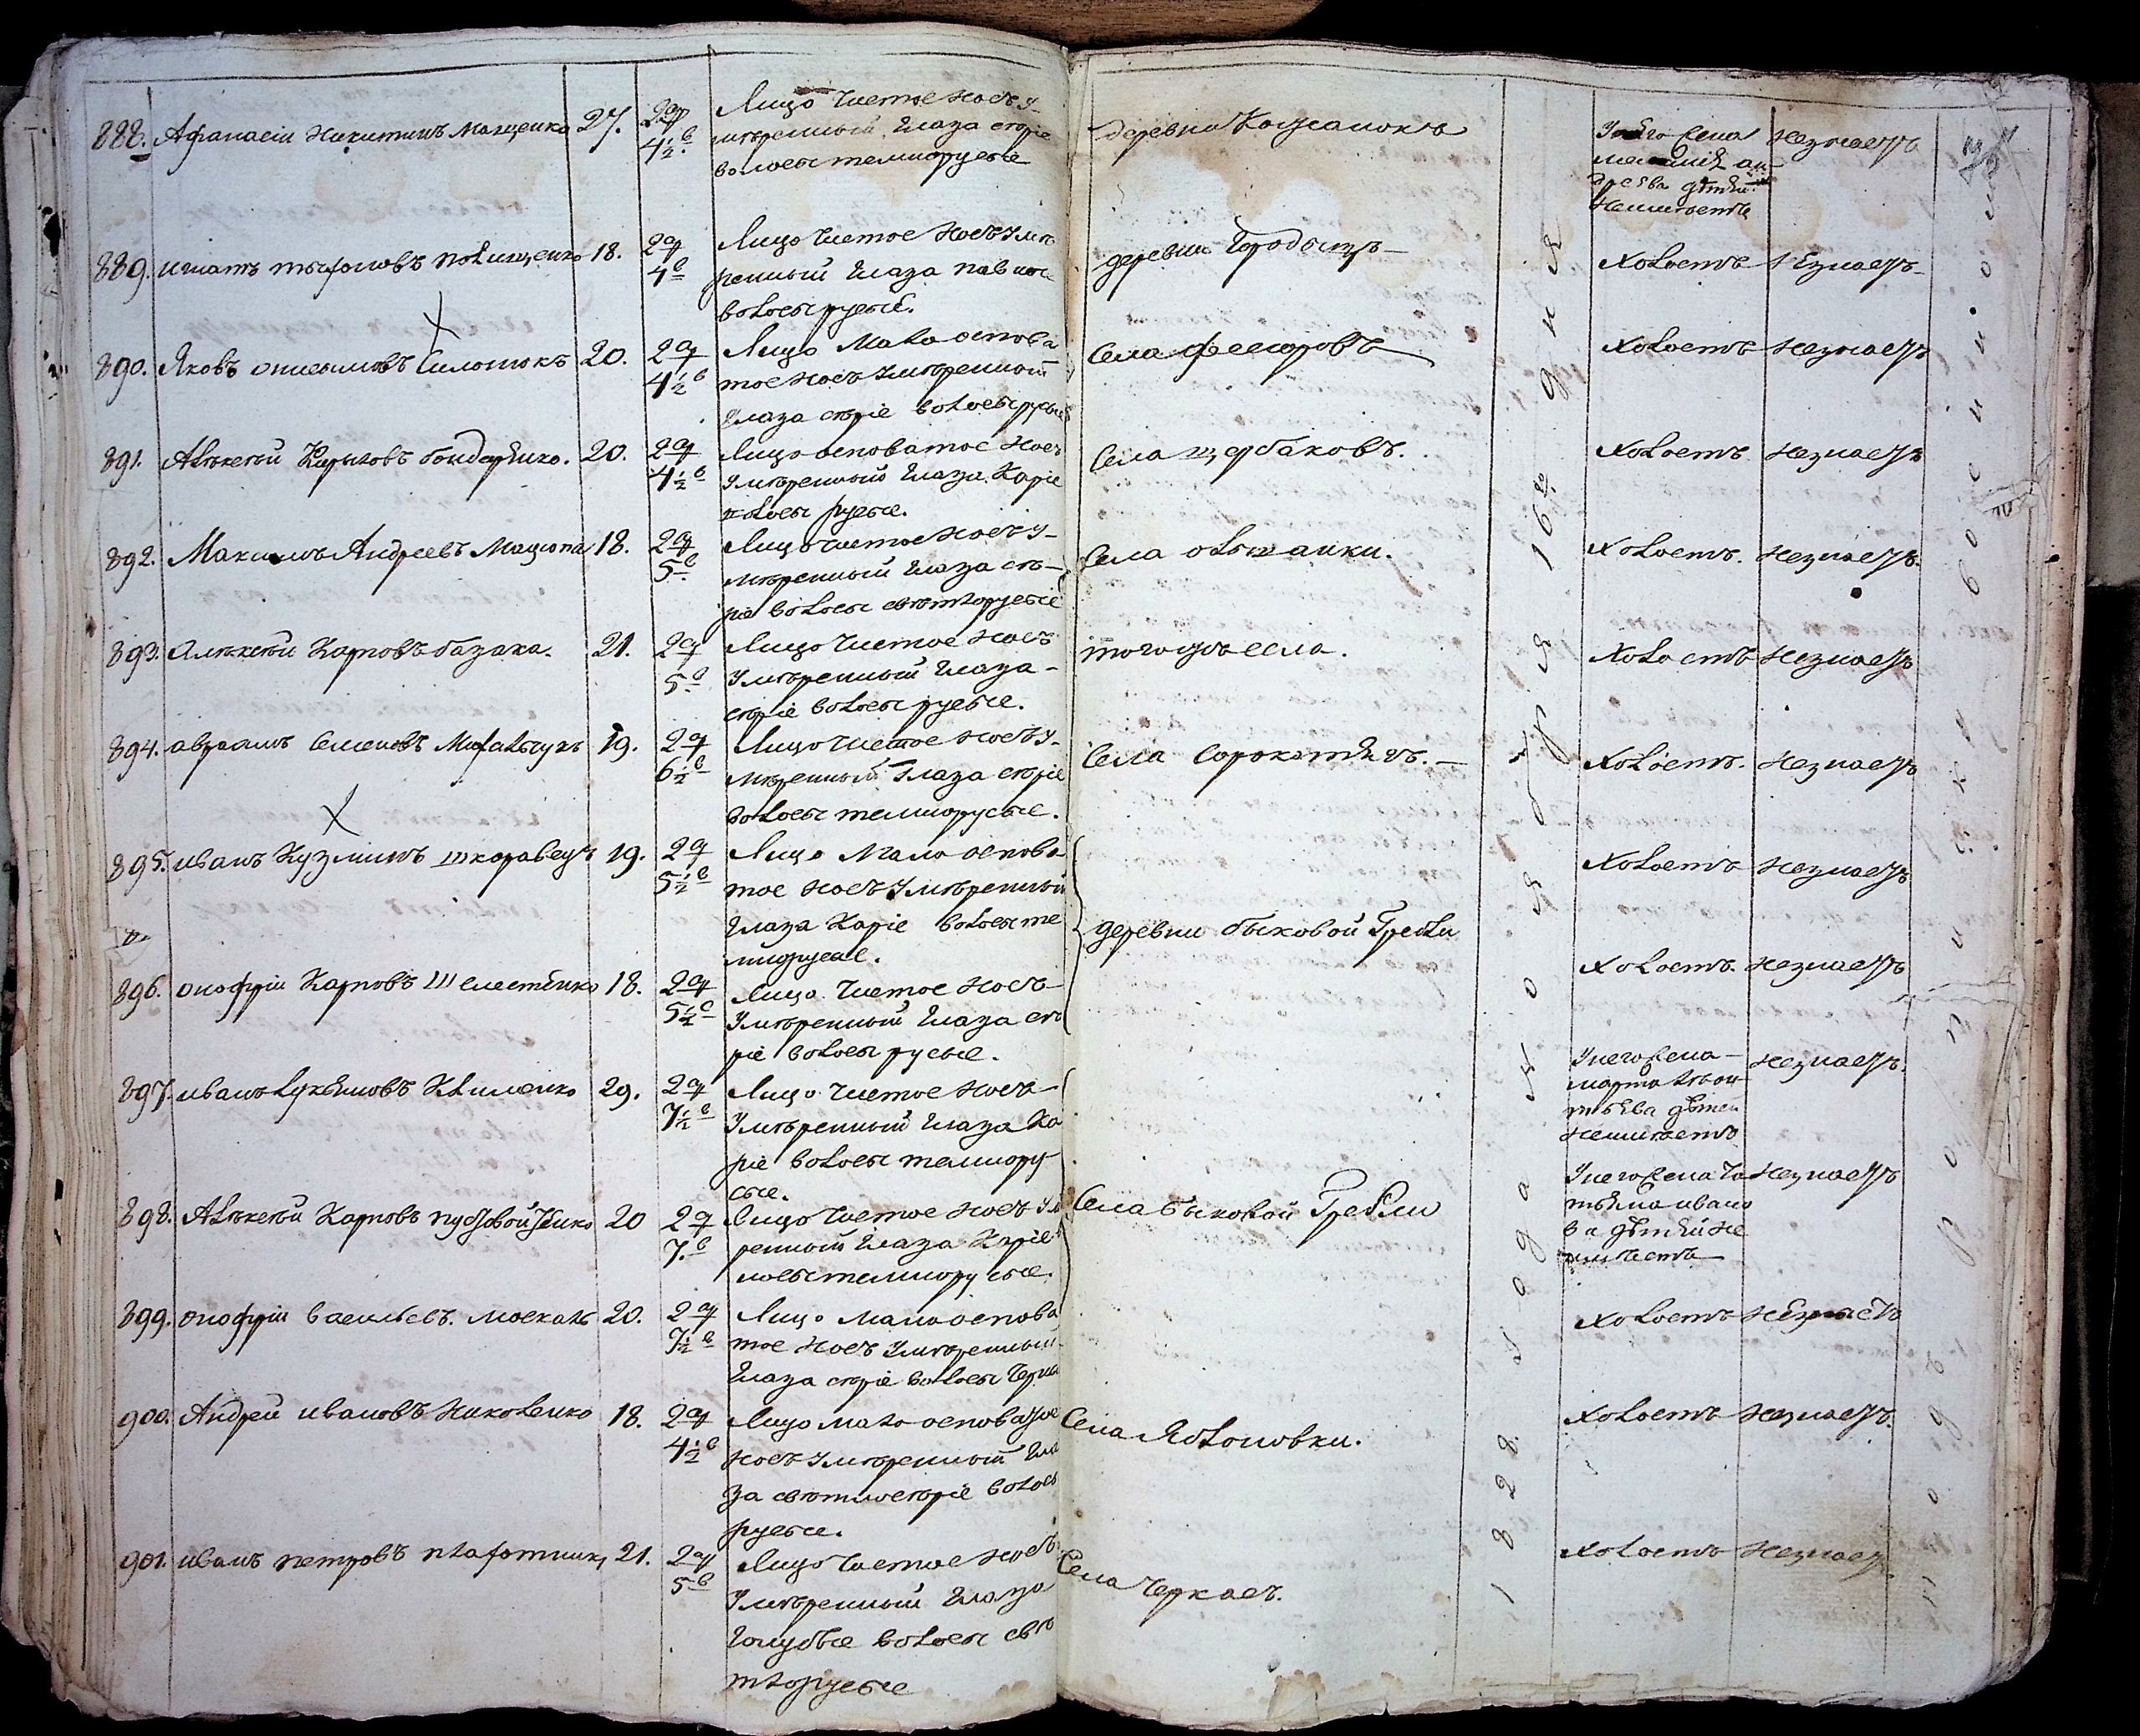 888. Афанасiи Никитинъ Мащенко 27. 2 ар 4½ в Лицо Чистое носъ у-
мѣренный Глаза сѣрiе
волосы темнорусые
деревни Кожанокъ
У него жена
дрѣева дѣтей
неимѣетъ
незнаетъ
889. игнатъ 18. 2 ар 4 в Лицо Чистое носъ умѣ
ренный Глаза
волосы русые.
деревни Городыщъ
холостъ незнаетъ
890. Яковъ онисимовъ 20. 2 ар 4½ в Лицо Мало оспова
тое носъ умѣренный
Глаза сѣрiе волосы русые
Села
холостъ незнаетъ
891. Алѣксѣй Кариловъ бондарѣнко. 20. 2 ар 4½ в Лицо осповатое носъ
умѣренный Глаза Карiе
волосы русые.
Села щербаковъ.
холостъ незнаетъ
892. Максимъ Андреевъ Мацюпа 18. 2 ар 5 в Лицо чистое носъ у-
мѣренный Глаза сѣ-
рiе волосы свѣтлорусые
Села ольшанки.
холостъ. незнаетъ.
893. Алѣксѣй Карповъ базака. 21. 2 ар 5 в Лицо Чистое носъ
умѣренный Глаза-
сѣрiе волосы русые.
тогожъ села.
холостъ незнаетъ
894. авраамъ Семеновъ Михальчукъ 19. 2 ар 6½ в Лицо Чистое носъ у-
мѣренный Глаза сѣрiе
волосы темнорусые.
Села Сорокотягъ.
холостъ. незнаетъ
895. иванъ Кузминъ шкоравецъ 19. 2 ар 5½ в Лицо Мало оспова
тое носъ умѣренный
Глаза Карiе волосы те
мнорусые.
деревни быковой Гребли
холостъ незнаетъ
896. онофрiи Карповъ Шелестѣнко 18. 2 ар 5½ в Лицо Чистое носъ-
умѣренный Глаза сѣ
рiе волосы русые.
холостъ. незнаетъ
897. иванъ лукѣяновъ Клименко 29. 2 ар 7½ в Лицо Чистое носъ-
умѣренный Глаза Ка
рiе волосы темнору
сые.
У него жена-
марта
дѣтей
неимѣетъ
незнаетъ.
898. Алѣксѣй Карповъ 20 2 ар 7. в Лицо Чистое носъ умѣ
ренный Глаза Карiе
лосы темнорусые.
Села быковой Гребли
У него жена
ива но
ва дѣтѣй не
имѣетъ
незнаетъ
899. онофрiи васильевъ. москаль 20. 2 ар 7½ в Лицо Мало оспова
тое носъ умѣренный
Глаза сѣрiе волосы Черни
холостъ незнаетъ
900. Андрей ивановъ Николенко 18. 2 ар 4½ в Лицо мало осповатое
носъ умѣренный Гла
за свѣтлосѣрiе волосы
русые.
Села Яблоновки.
холостъ незнаетъ.
901. иванъ петровъ плахотникъ 21. 2 ар 5 в Лицо Чистое носъ
умѣренный Глаза
Голубые волосы свѣ
тлорусые
Села Черкасъ.
холостъ незнаетъ
1828. года ноября 16го дня